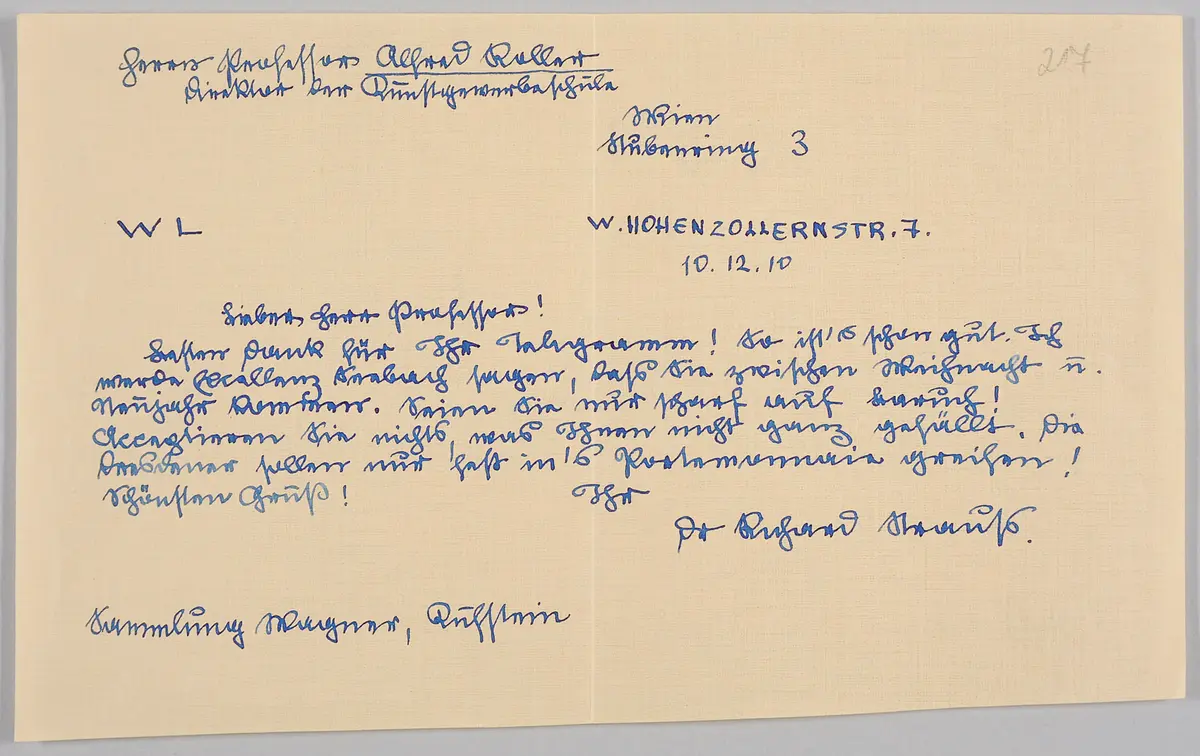 Herrn Professor Alfred Roller
217
Direktor der Kunstgewerbeschule
Wien
Stubenring 3
W L
W. HOHENZOLLERNSTR. 7.
10. 12. 10
Lieber Herr Professor!
Besten Dank für Ihr Telegramm! So ist's schon gut. Ich
werde Excellenz Seebach sagen, dass Sie zwischen Weihnacht u.
Neujahr kommen. Seien Sie nur scharf auf
Acceptieren Sie nichts, was Ihnen nicht ganz gefällt. Die
Dresdener sollen nur fest in's Portemonnaie greifen!
Schönsten Gruß! Ihr
Dr Richard Strauss.
Sammlung Wagner, Kufstein